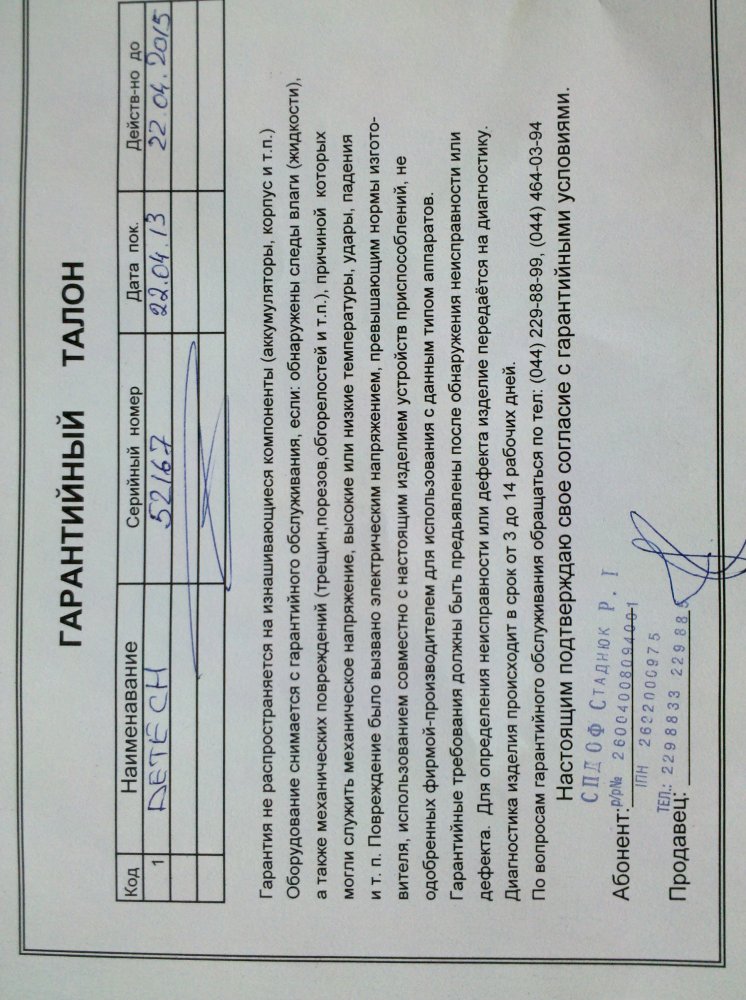 ГАРАНТИЙНЫЙ ТАЛОН
Код Наименавание Серийный номер Дата пок. Действ-но до
1 DETECH 52167 22.04.13 22.04.2015
Гарантия не распространяется на изнашивающиеся компоненты (аккумуляторы, корпус и т.п.)
Оборудование снимается с гарантийного обслуживания, если: обнаружены следы влаги (жидкости),
а также механических повреждений (трещин,порезов,обгорелостей и т.п.), причиной которых
могли служить механическое напряжение, высокие или низкие температуры, удары, падения
и т. п. Повреждение было вызвано электрическим напряжением, превышающим нормы изгото-
вителя, использованием совместно с настоящим изделием устройств приспособлений, не
одобренных фирмой-производителем для использования с данным типом аппаратов.
Гарантийные требования должны быть предьявлены после обнаружения неисправности или
дефекта. Для определения неисправности или дефекта изделие передаётся на диагностику.
Диагностика изделия происходит в срок от 3 до 14 рабочих дней.
По вопросам гарантийного обслуживания обращаться по тел: (044) 229-88-99, (044) 464-03-94
Настоящим подтверждаю свое согласие с гарантийными условиями.
СПДОФ Стаднюк Р. І
Абонент: р/р№ 26004008094001
ІПН 2622000975
ТЕЛ.: 2298833 229885
Продавец: